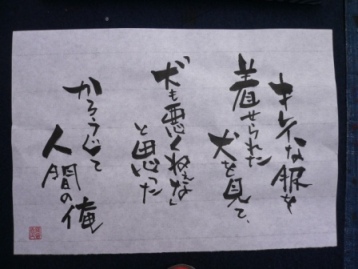 キレイな服を
着せられた
犬を見て、
「犬も悪くねぇな」
と思った
かろうじて
人間の俺